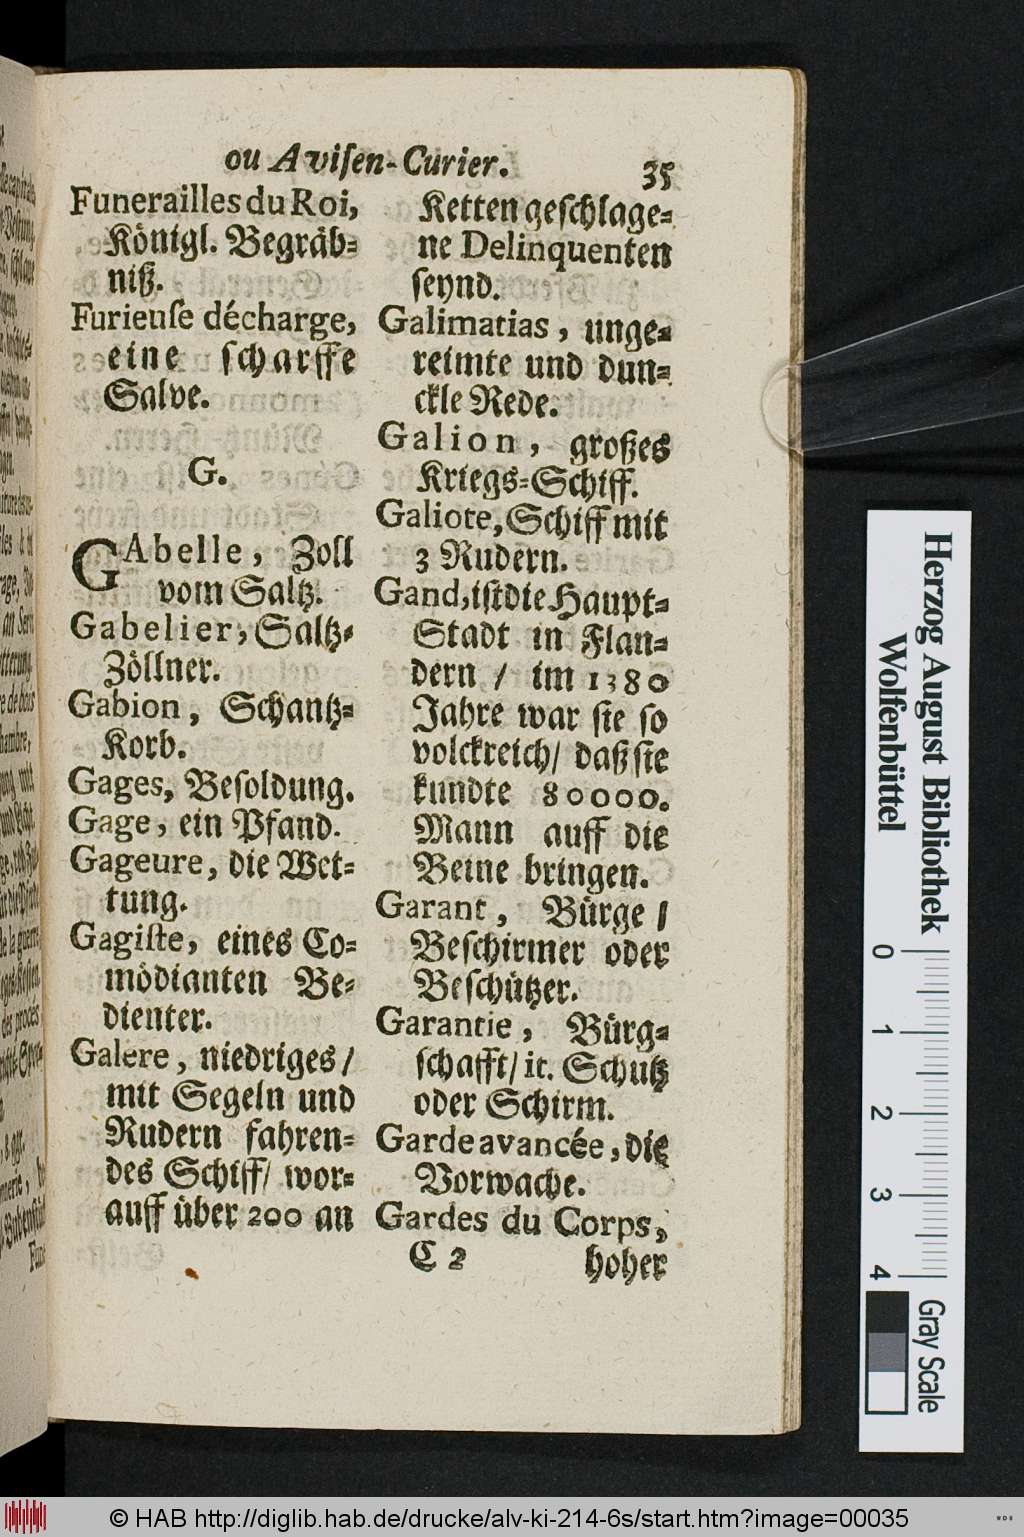 ou Aviſen-Curier. 35
Funerailles du Roi,
Königl. Begräb-
niß.
Furieuſe décharge,
eine ſcharffe
Salve.
G.
GAbelle, Zoll
vom Saltz.
Gabelier, Saltz-
Zöllner.
Gabion, Schantz-
Korb.
Gages, Beſoldung.
Gage, ein Pfand.
Gageure, die Wet-
tung.
Gagiſte, eines Co-
mödianten Be-
dienter.
Galere, niedriges /
mit Segeln und
Rudern fahren-
des Schiff / wor-
auff über 200 an
Ketten geſchlage-
ne Delinquenten
ſeynd.
Galimatias, unge-
reimte und dun-
ckle Rede.
Galion, großes
Kriegs-Schiff.
Galiote, Schiff mit
3 Rudern.
Gand, iſt die Haupt-
Stadt in Flan-
dern / im 1380
Jahre war ſie ſo
volckreich / daß ſie
kundte 80000.
Mann auff die
Beine bringen.
Garant, Bürge /
Beſchirmer oder
Beſchützer.
Garantie, Bürg-
ſchafft / it. Schutz
oder Schirm.
Garde avancée, die
Vorwache.
Gardes du Corps,
C 2 hoher
Herzog August Bibliothek
Wolfenbüttel
0 1 2 3 4
Gray Scale
© HAB http://diglib.hab.de/drucke/alv-ki-214-6s/start.htm?image=00035